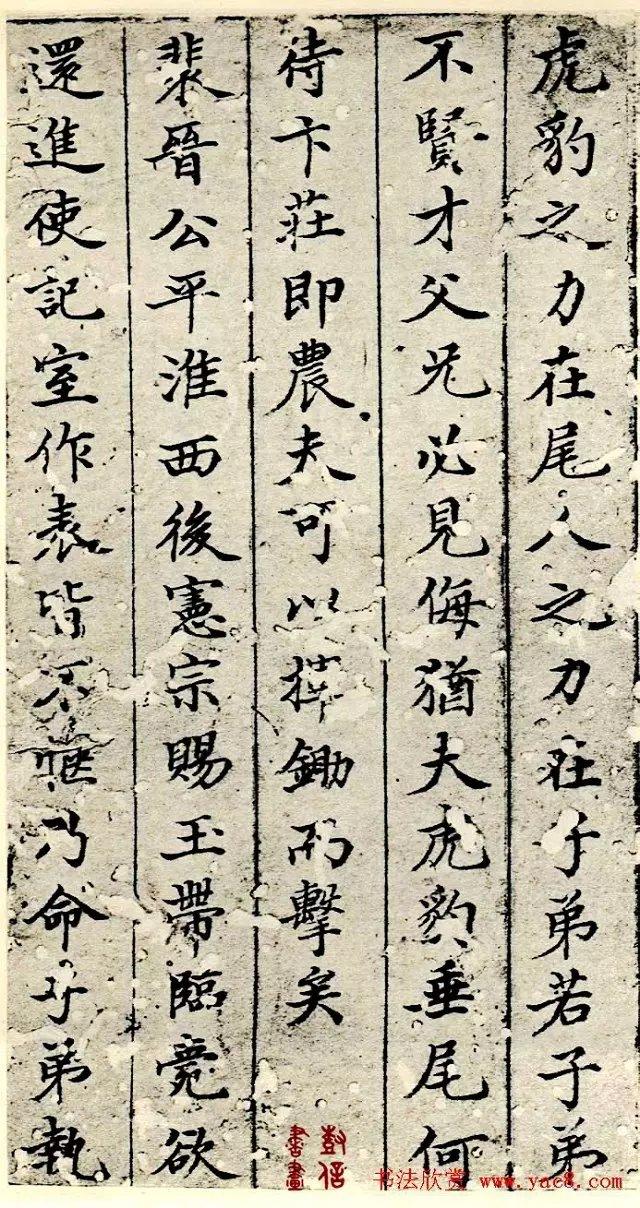 虎豹之力在尾人之力在子弟若子弟
不賢才父兄必見侮猶夫虎豹垂尾何
待卞莊即農夫可以荷鋤而擊矣
裴晉公平淮西後憲宗賜玉帶臨薨欲
還進使記室作表皆不愜乃命子弟執
彭信書畫
书法欣赏 www.yac8.com